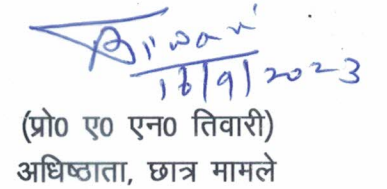 Tiwari
16/9/2023
(प्रो0 ए0 एन0 तिवारी)
अधिष्ठाता, छात्र मामले